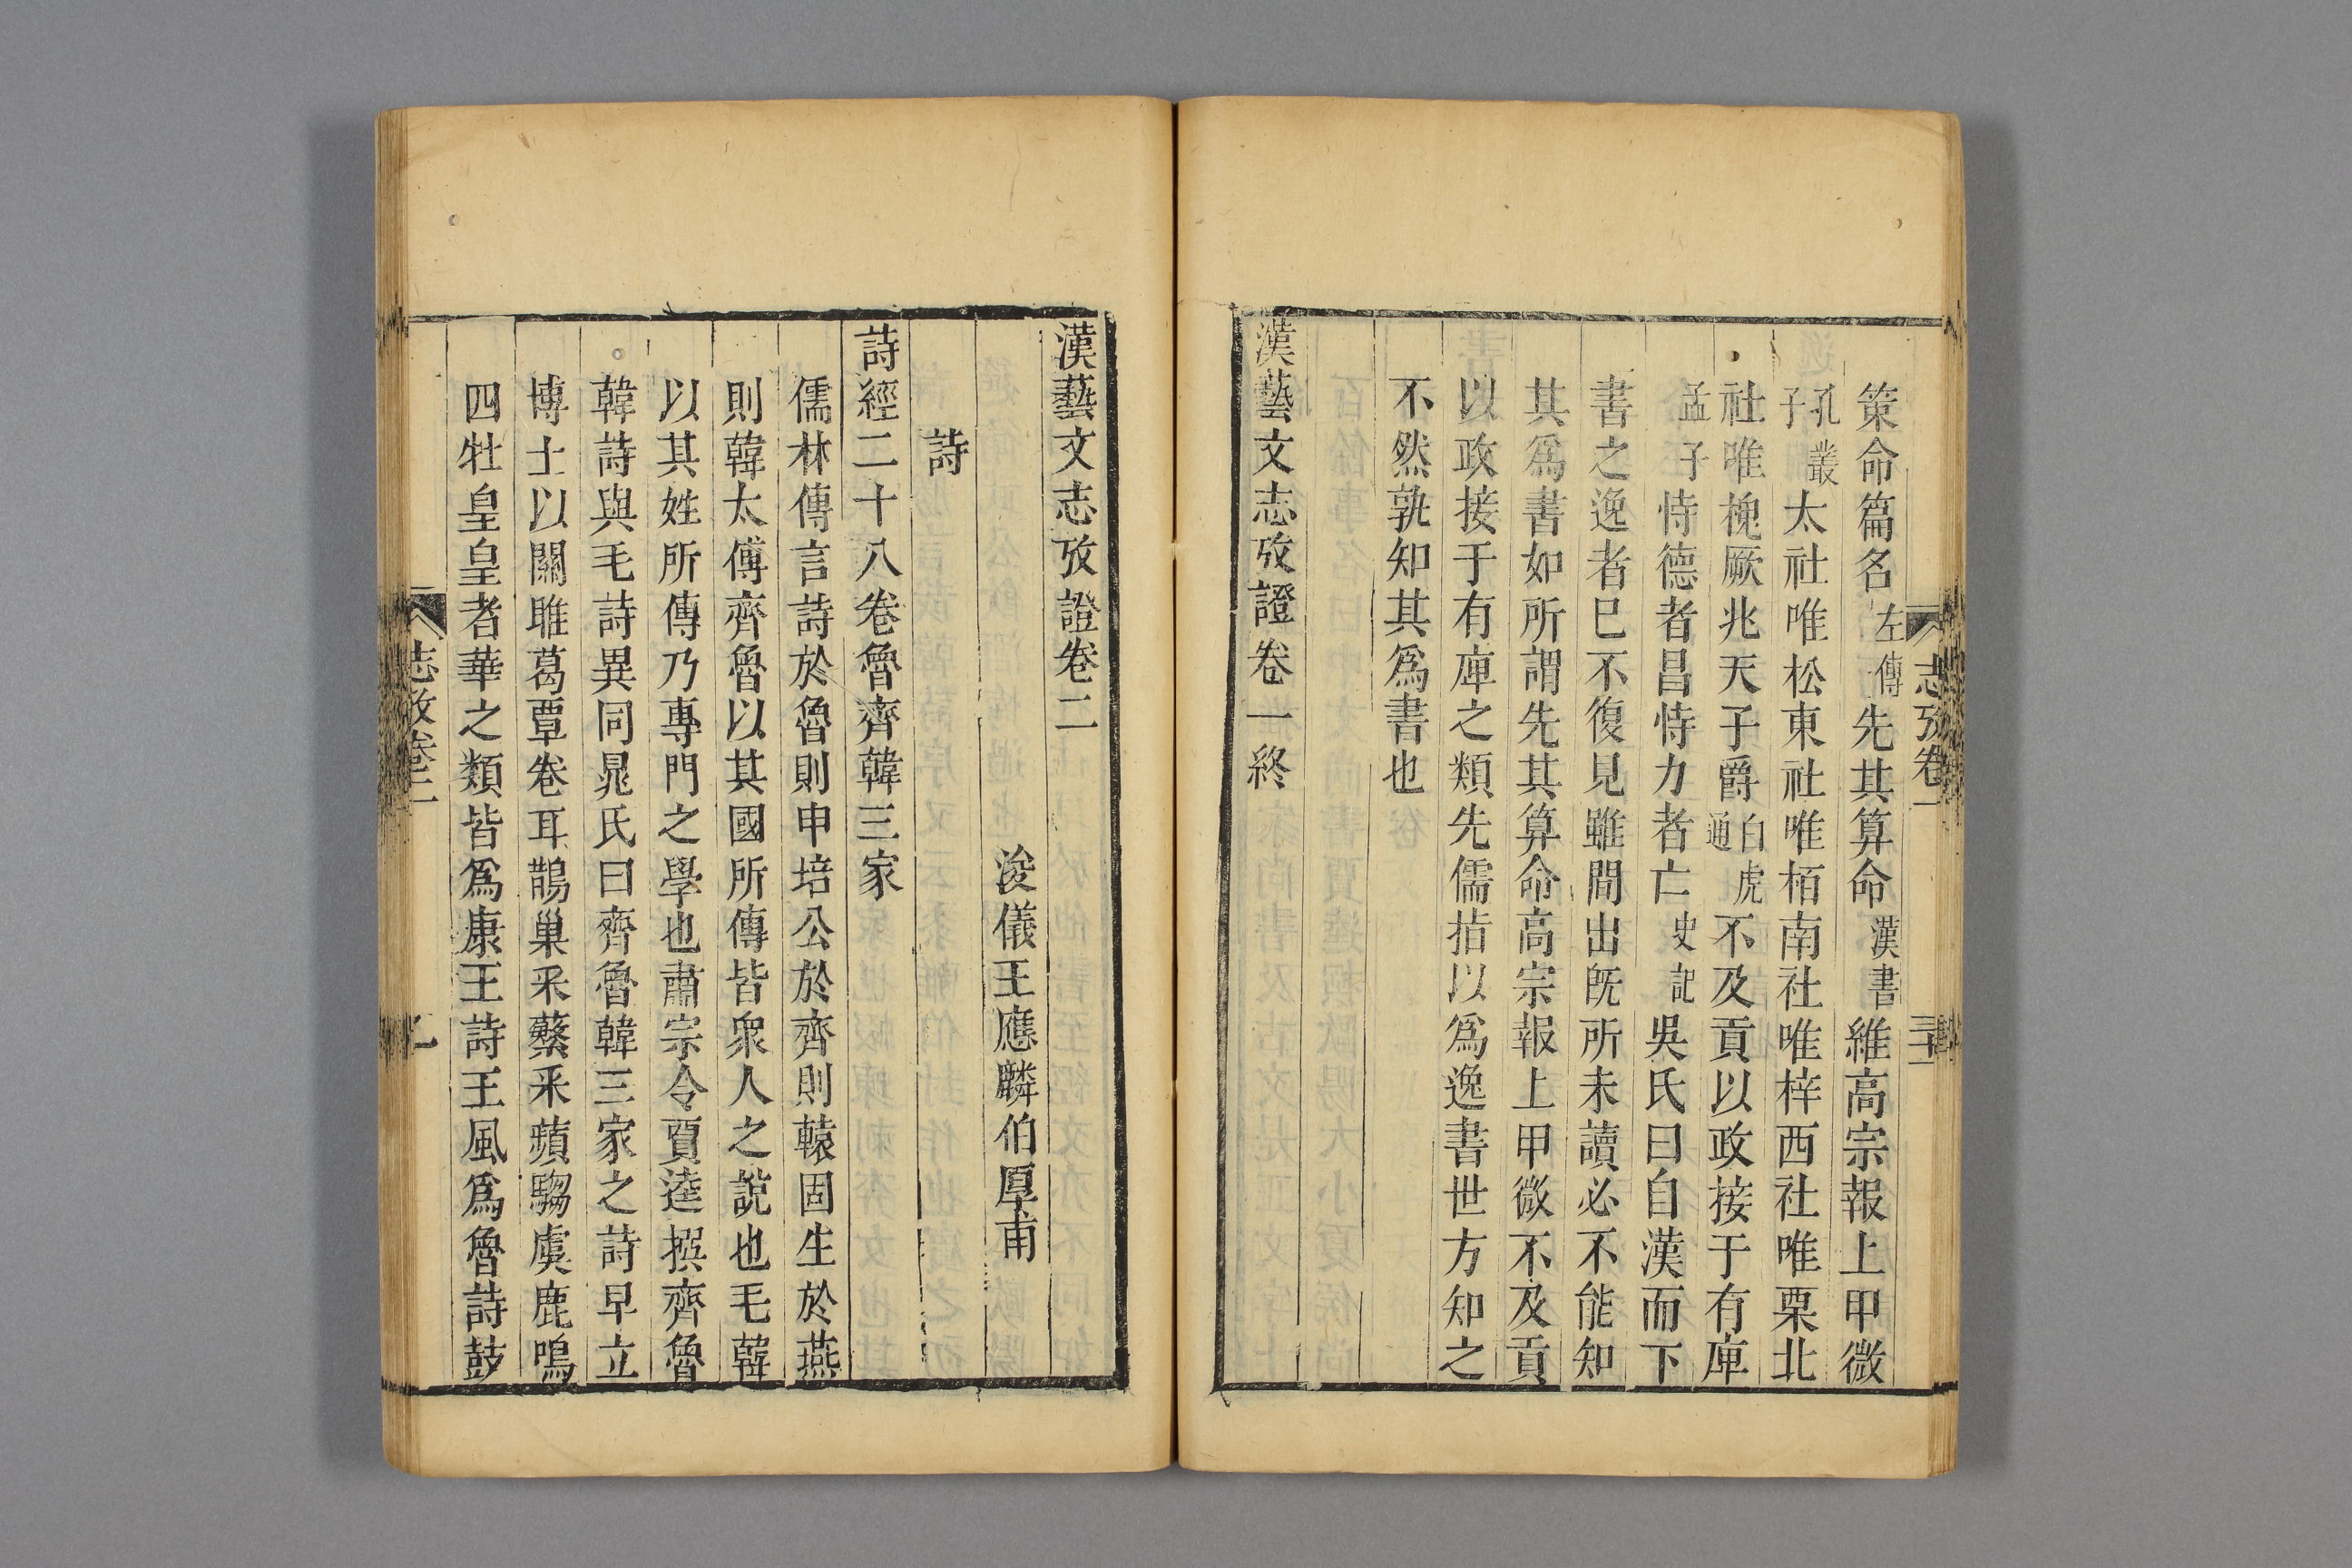 策命篇名左傳先其算命漢書維高宗報上甲微
孔叢子太社唯松東社唯栢南社唯梓西社唯栗北
社唯槐厥兆天子爵白虎通不及貢以政接于有庳
孟子恃德者昌恃力者亡史記吳氏曰自漢而下
書之逸者已不復見雖間出旣所未讀必不能知
其爲書如所謂先其算命高宗報上甲微不及貢
以政接于有庳之類先儒指以爲逸書世方知之
不然孰知其爲書也
漢藝文志攷證卷一終
志攷卷一
三十一
漢藝文志攷證卷二
浚儀王應麟伯厚甫
詩
詩經二十八卷魯齊韓三家
儒林傳言詩於魯則申培公於齊則轅固生於燕
則韓太傅齊魯以其國所傳皆衆人之說也毛韓
以其姓所傳乃專門之學也肅宗令賈逵撰齊魯
韓詩與毛詩異同晁氏曰齊魯韓三家之詩早立
博士以關雎葛覃卷耳鵲巢采蘩采蘋騶虞鹿鳴
四牡皇皇者華之類皆爲康王詩王風爲魯詩鼓
志攷卷二